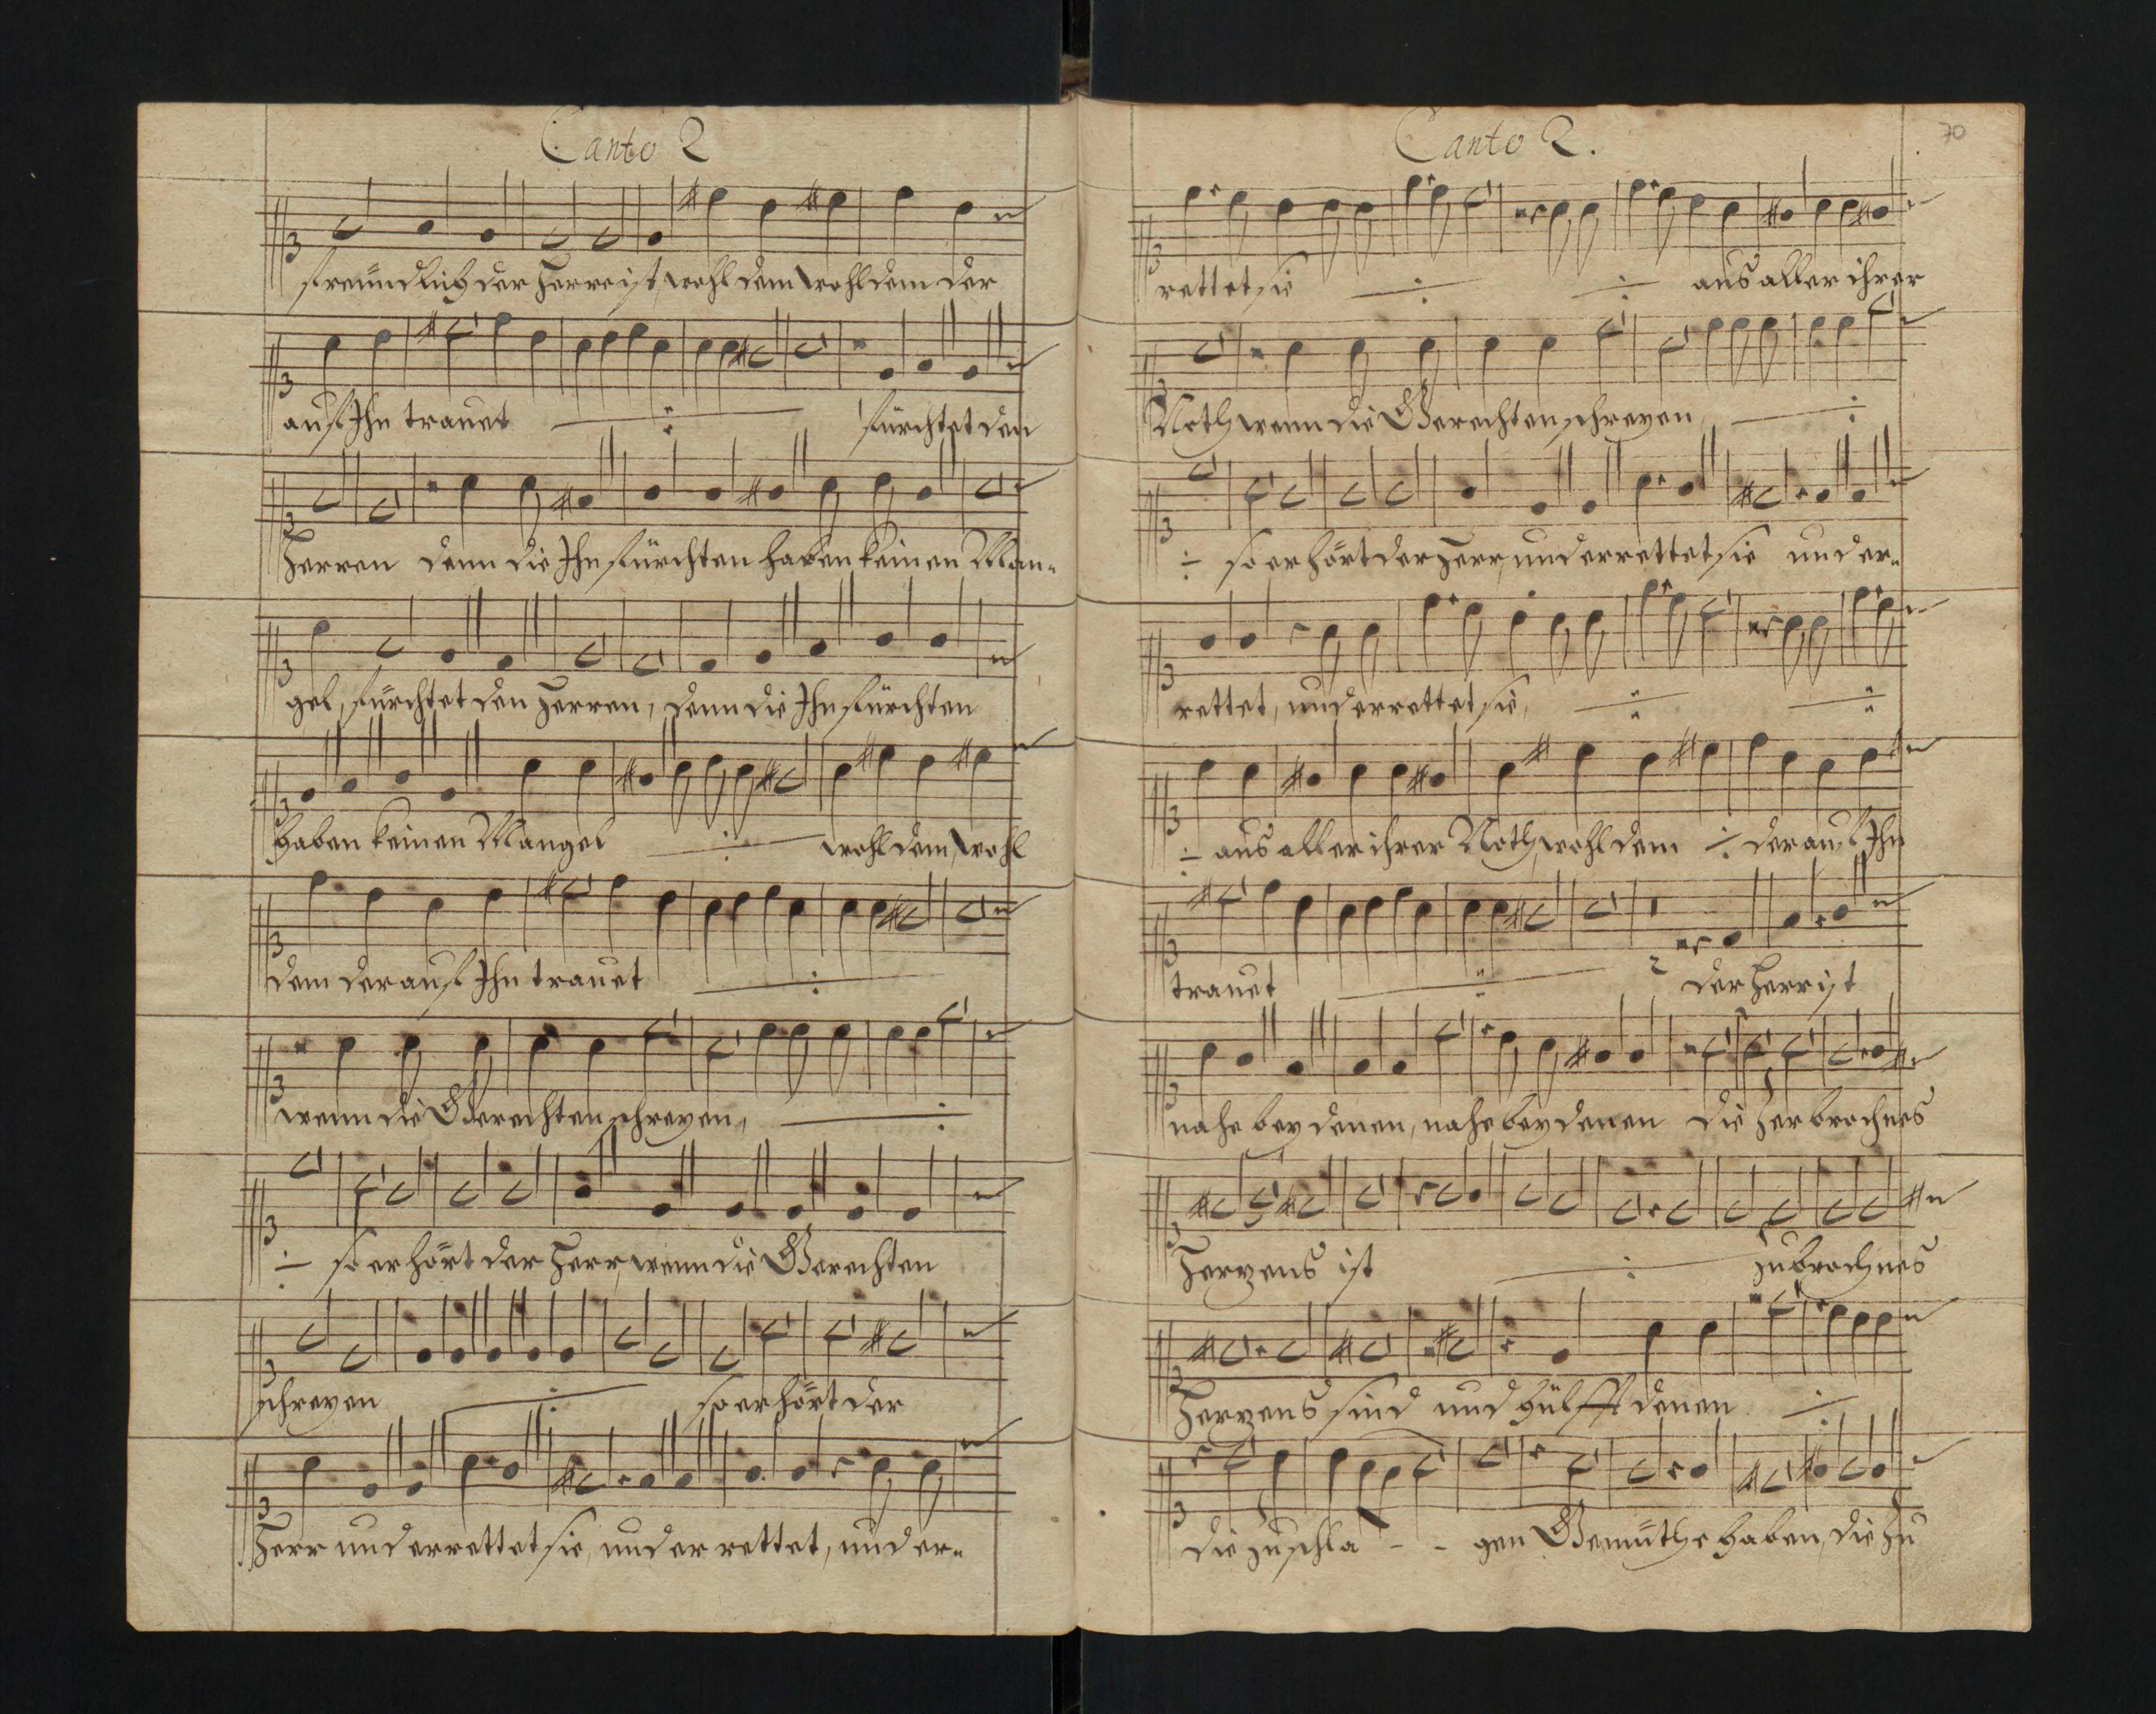 Canto 2
freündlich der Herre ist, wohl dem wohl dem der
auf Ihn trauet fürchtet den
Herren denn die Ihn fürchten haben keinen Man-
gel, fürchtet den Herren, denn die Ihn fürchten
haben keinen Mangel wohl dem, wohl
dem der auf Ihn trauet
wenn die Gerechten schreyen,
so erhört der Herr, wenn die Gerechten
schreyen so erhört der
Herr und errettet sie, und errettet, und er-
Canto 2.
70
rettet sie aus aller ihrer
Noth wenn die Gerechten schreyen,
so erhört der Herr, und errettet sie und er-
rettet, und errettet sie,
aus aller ihrer Noth, wohl dem der auf Ihn
trauet 2 der Herr ist
nahe bey denen, nahe bey denen die zerbrochnes
Herzens ist zubrochnes
Herzens sind und hülfft denen
die zuschla - - gen Gemüthe haben, die zu